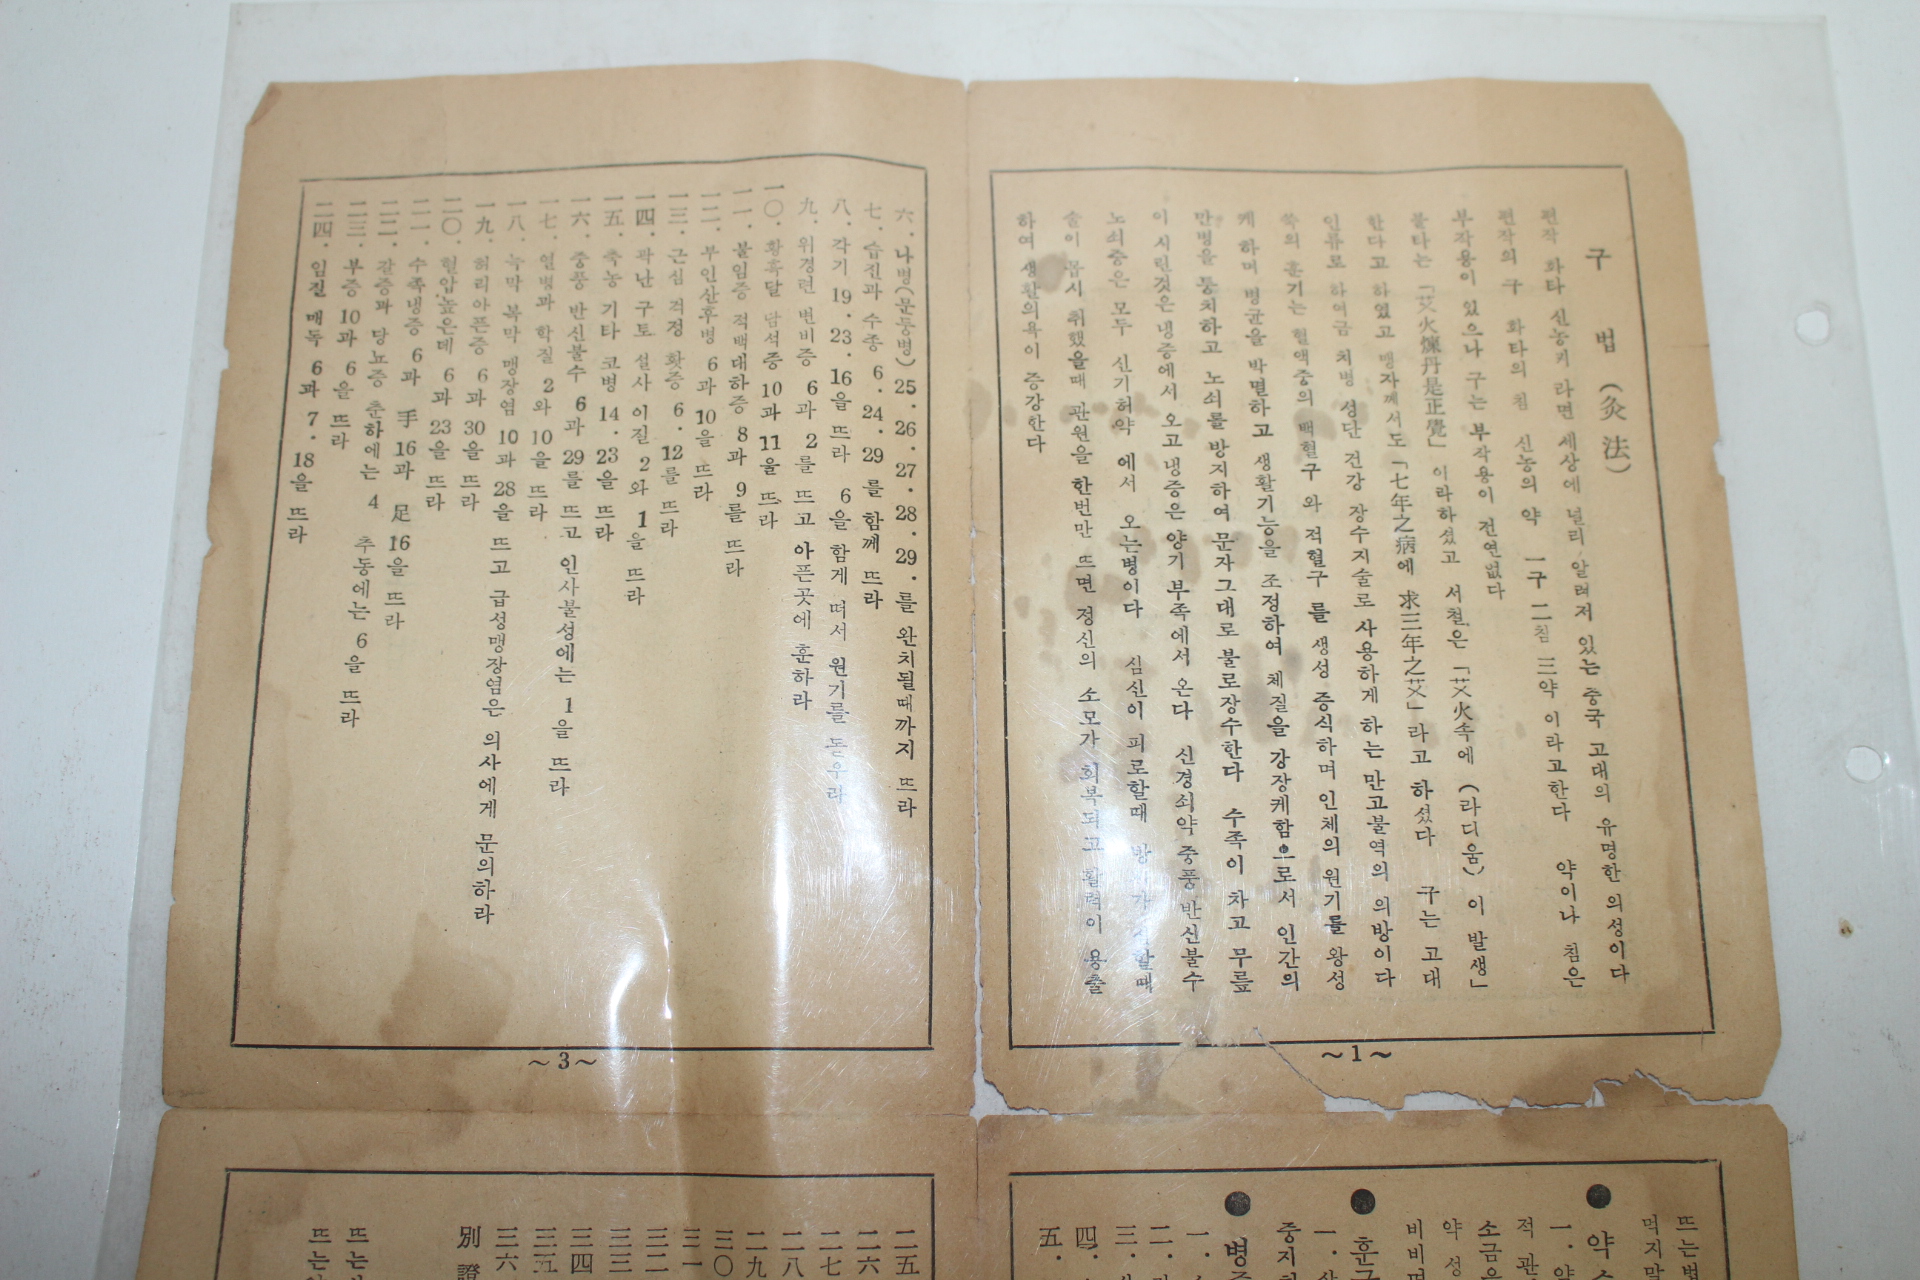 구 법 (灸 法)
편작 화타 신농키 라면 세상에 널리 알려저 있는 중국 고대의 유명한 의성이다
편작의 구 화타의 침 신농의 약 一구 二침 三약 이라고한다 약이나 침은
부작용이 있으나 구는 부작용이 전연없다
불타는 「艾火煉丹是正覺」 이라하셨고 서철은 「艾火속에 (라디움) 이 발생」
한다고 하였고 맹자께서도 「七年之病에 求三年之艾」 라고 하셨다 구는 고대
인류로 하여금 치병 성단 건강 장수지술로 사용하게 하는 만고불역의 의방이다
쑥의 훈기는 혈액중의 백혈구 와 적혈구 를 생성 증식하며 인체의 원기를 왕성
케 하며 병균을 박멸하고 생활기능을 조정하여 체질을 강장케함으로서 인간의
만병을 통치하고 노쇠를 방지하여 문자그대로 불로장수한다 수족이 차고 무릎
이 시린것은 냉증에서 오고 냉증은 양기 부족에서 온다 신경쇠약 중풍 반신불수
노쇠증은 모두 신기허약 에서 오는병이다 심신이 피로할때
술이 몹시 취했을때 관원을 한번만 뜨면 정신의 소모가 회복되고 활력이 용출
하여 생활의욕이 증강한다
~1~
六. 나병(문둥병) 25. 26. 27. 28. 29. 를 완치될때까지 뜨라
七. 습진과 수종 6. 24. 29 를 함께 뜨라
八. 각기 19. 23. 16을 뜨라 6을 함게 떠서 원기를 돋우라
九. 위경련 변비증 6과 2를 뜨고 아픈곳에 훈하라
一〇. 황흑달 담석중 10과 11을 뜨라
一一. 불임증 적백대하증 8과 9를 뜨라
一二. 부인산후병 6과 10을 뜨라
一三. 근심 걱정 홧증 6. 12를 뜨라
一四. 곽난 구토 설사 이질 2와 1을 뜨라
一五. 축농 기타 코병 14. 23을 뜨라
一六. 중풍 반신불수 6과 29를 뜨고 인사불성에는 1을 뜨라
一七. 열병과 학질 2와 10을 뜨라
一八. 늑막 복막 맹장염 10과 28을 뜨고 급성맹장염은 의사에게 문의하라
一九. 허리아픈증 6과 30을 뜨라
二〇. 혈압높은데 6과 23을 뜨라
二一. 수족냉증 6과 手16과 足16을 뜨라
二二. 갈증과 당뇨증 춘하에는 4 추동에는 6을 뜨라
二三. 부증 10과 6을 뜨라
二四. 임질 매독 6과 7. 18을 뜨라
~3~
뜨는병
먹지말
● 약수
一. 약
적 관
소금은
약 성
비비며
● 훈구
一. 상
중지하
● 병증
一.
二.
三.
四.
五.
二五
二六
二七
二八
二九
三〇
三一
三二
三三
三四
三五
三六
別 證
뜨는
뜨는